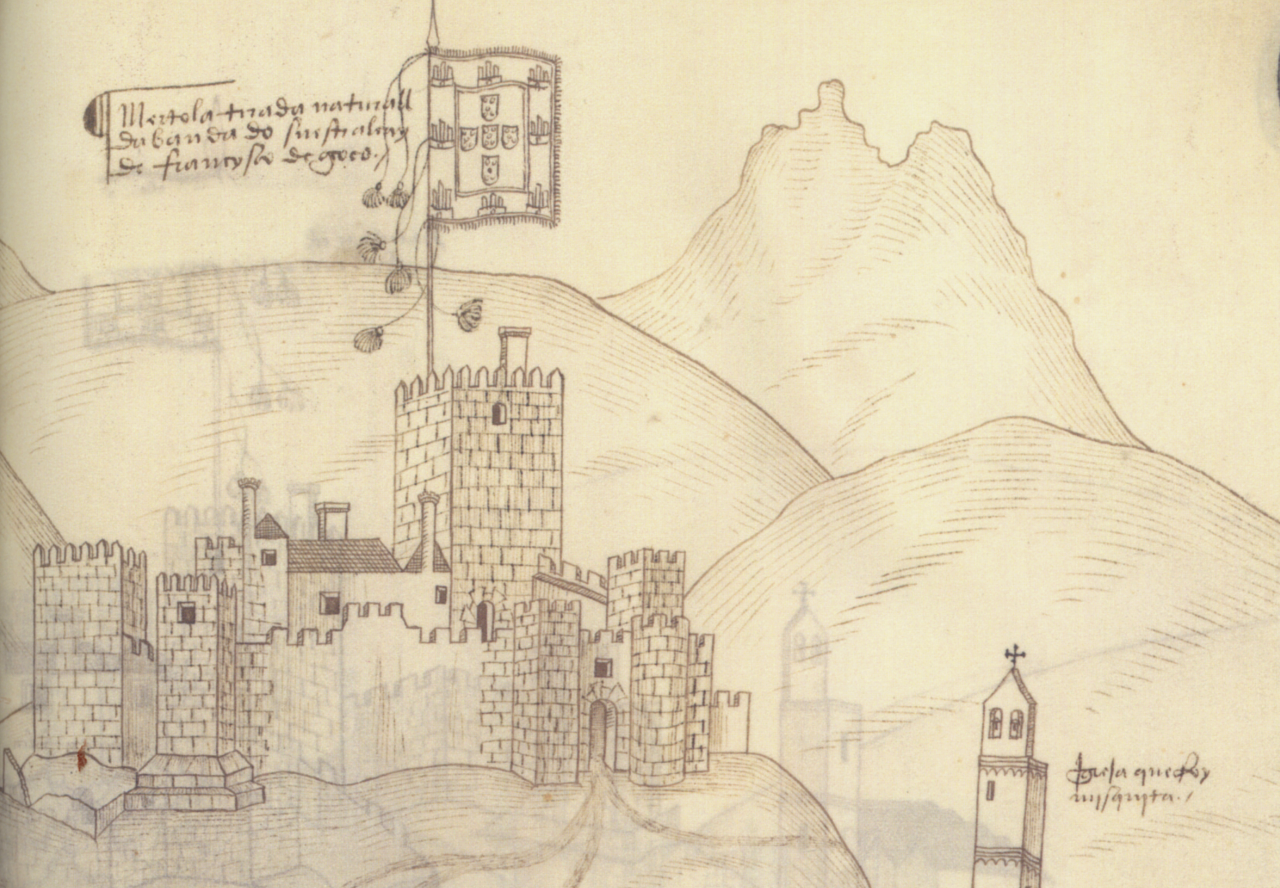 Mertola tirada naturall
da banda do
de francysco de goes.
Igreja que foy
misquita.